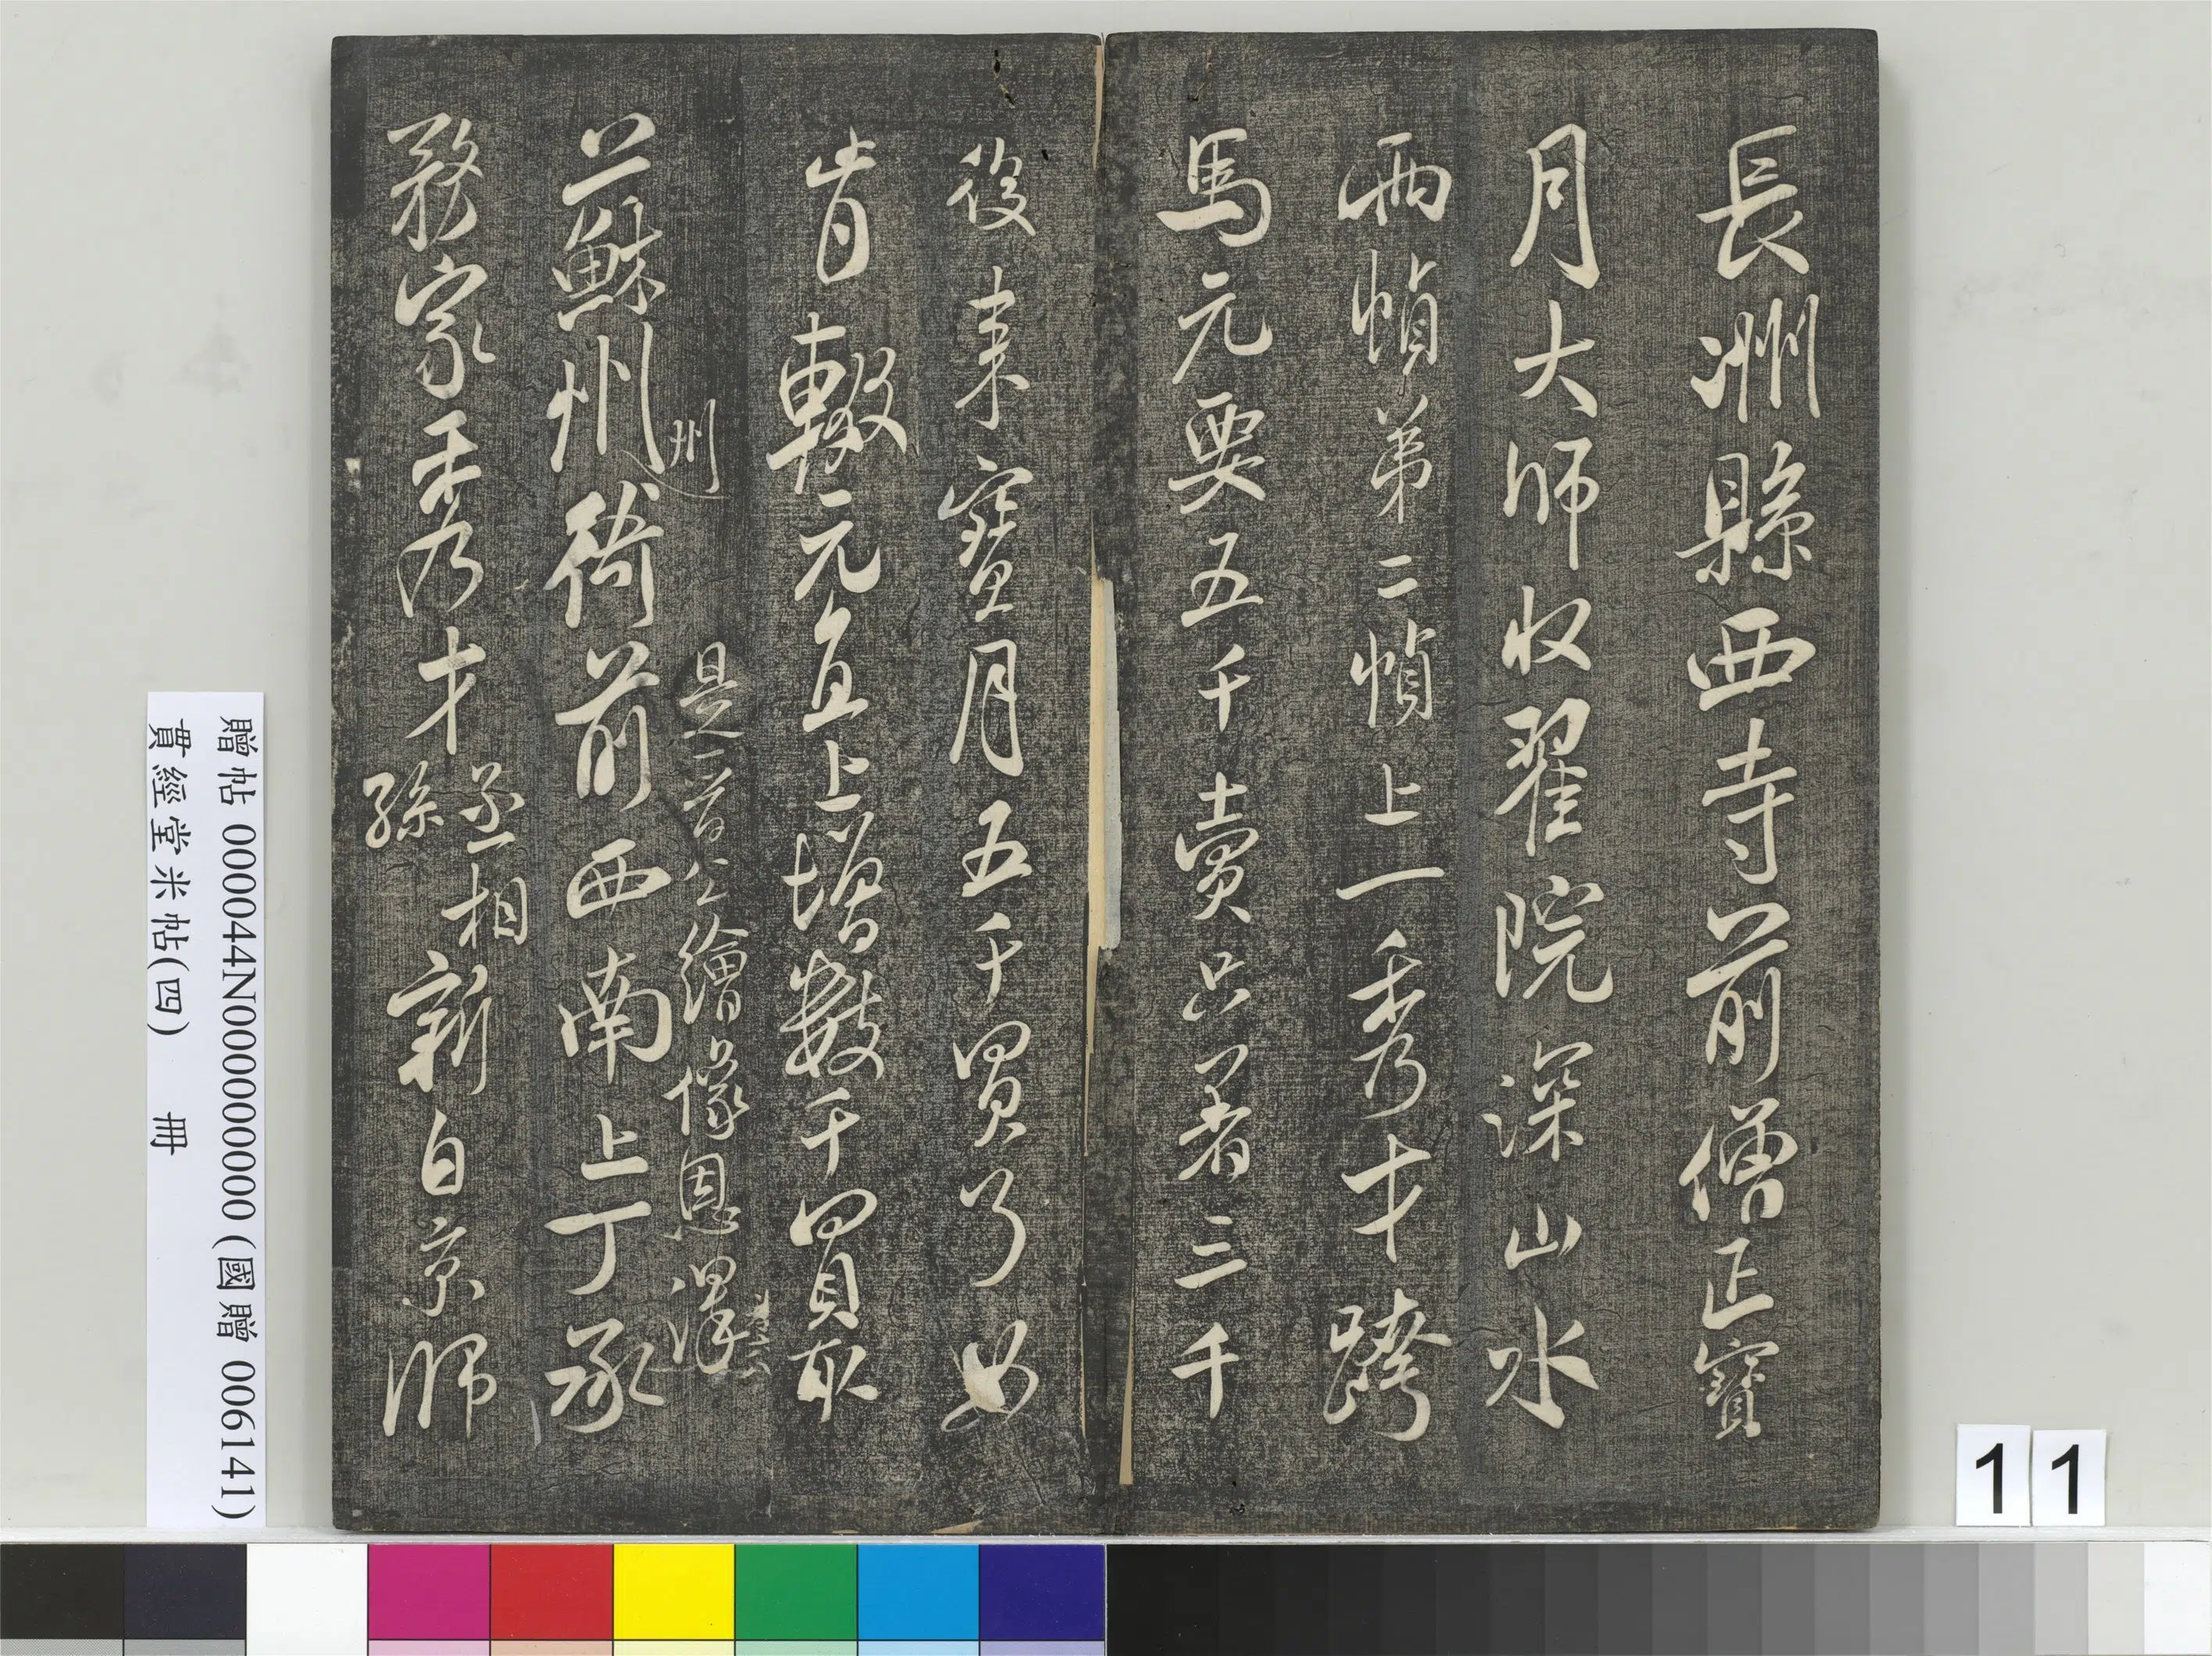 長洲縣西寺前僧正寶
月大師收翟院深山水
兩幀第二幀上一秀才跨
馬元要五千賣只著三千
後來寶月五千買了如
肯輟元直上增數千買取
州
是晉公繪像恩澤
蘇州衙前西南上丁承
務家秀才丞相孫新自京師
贈帖 000044N000000000 (國贈 006141)
貫經堂米帖(四) 冊
11